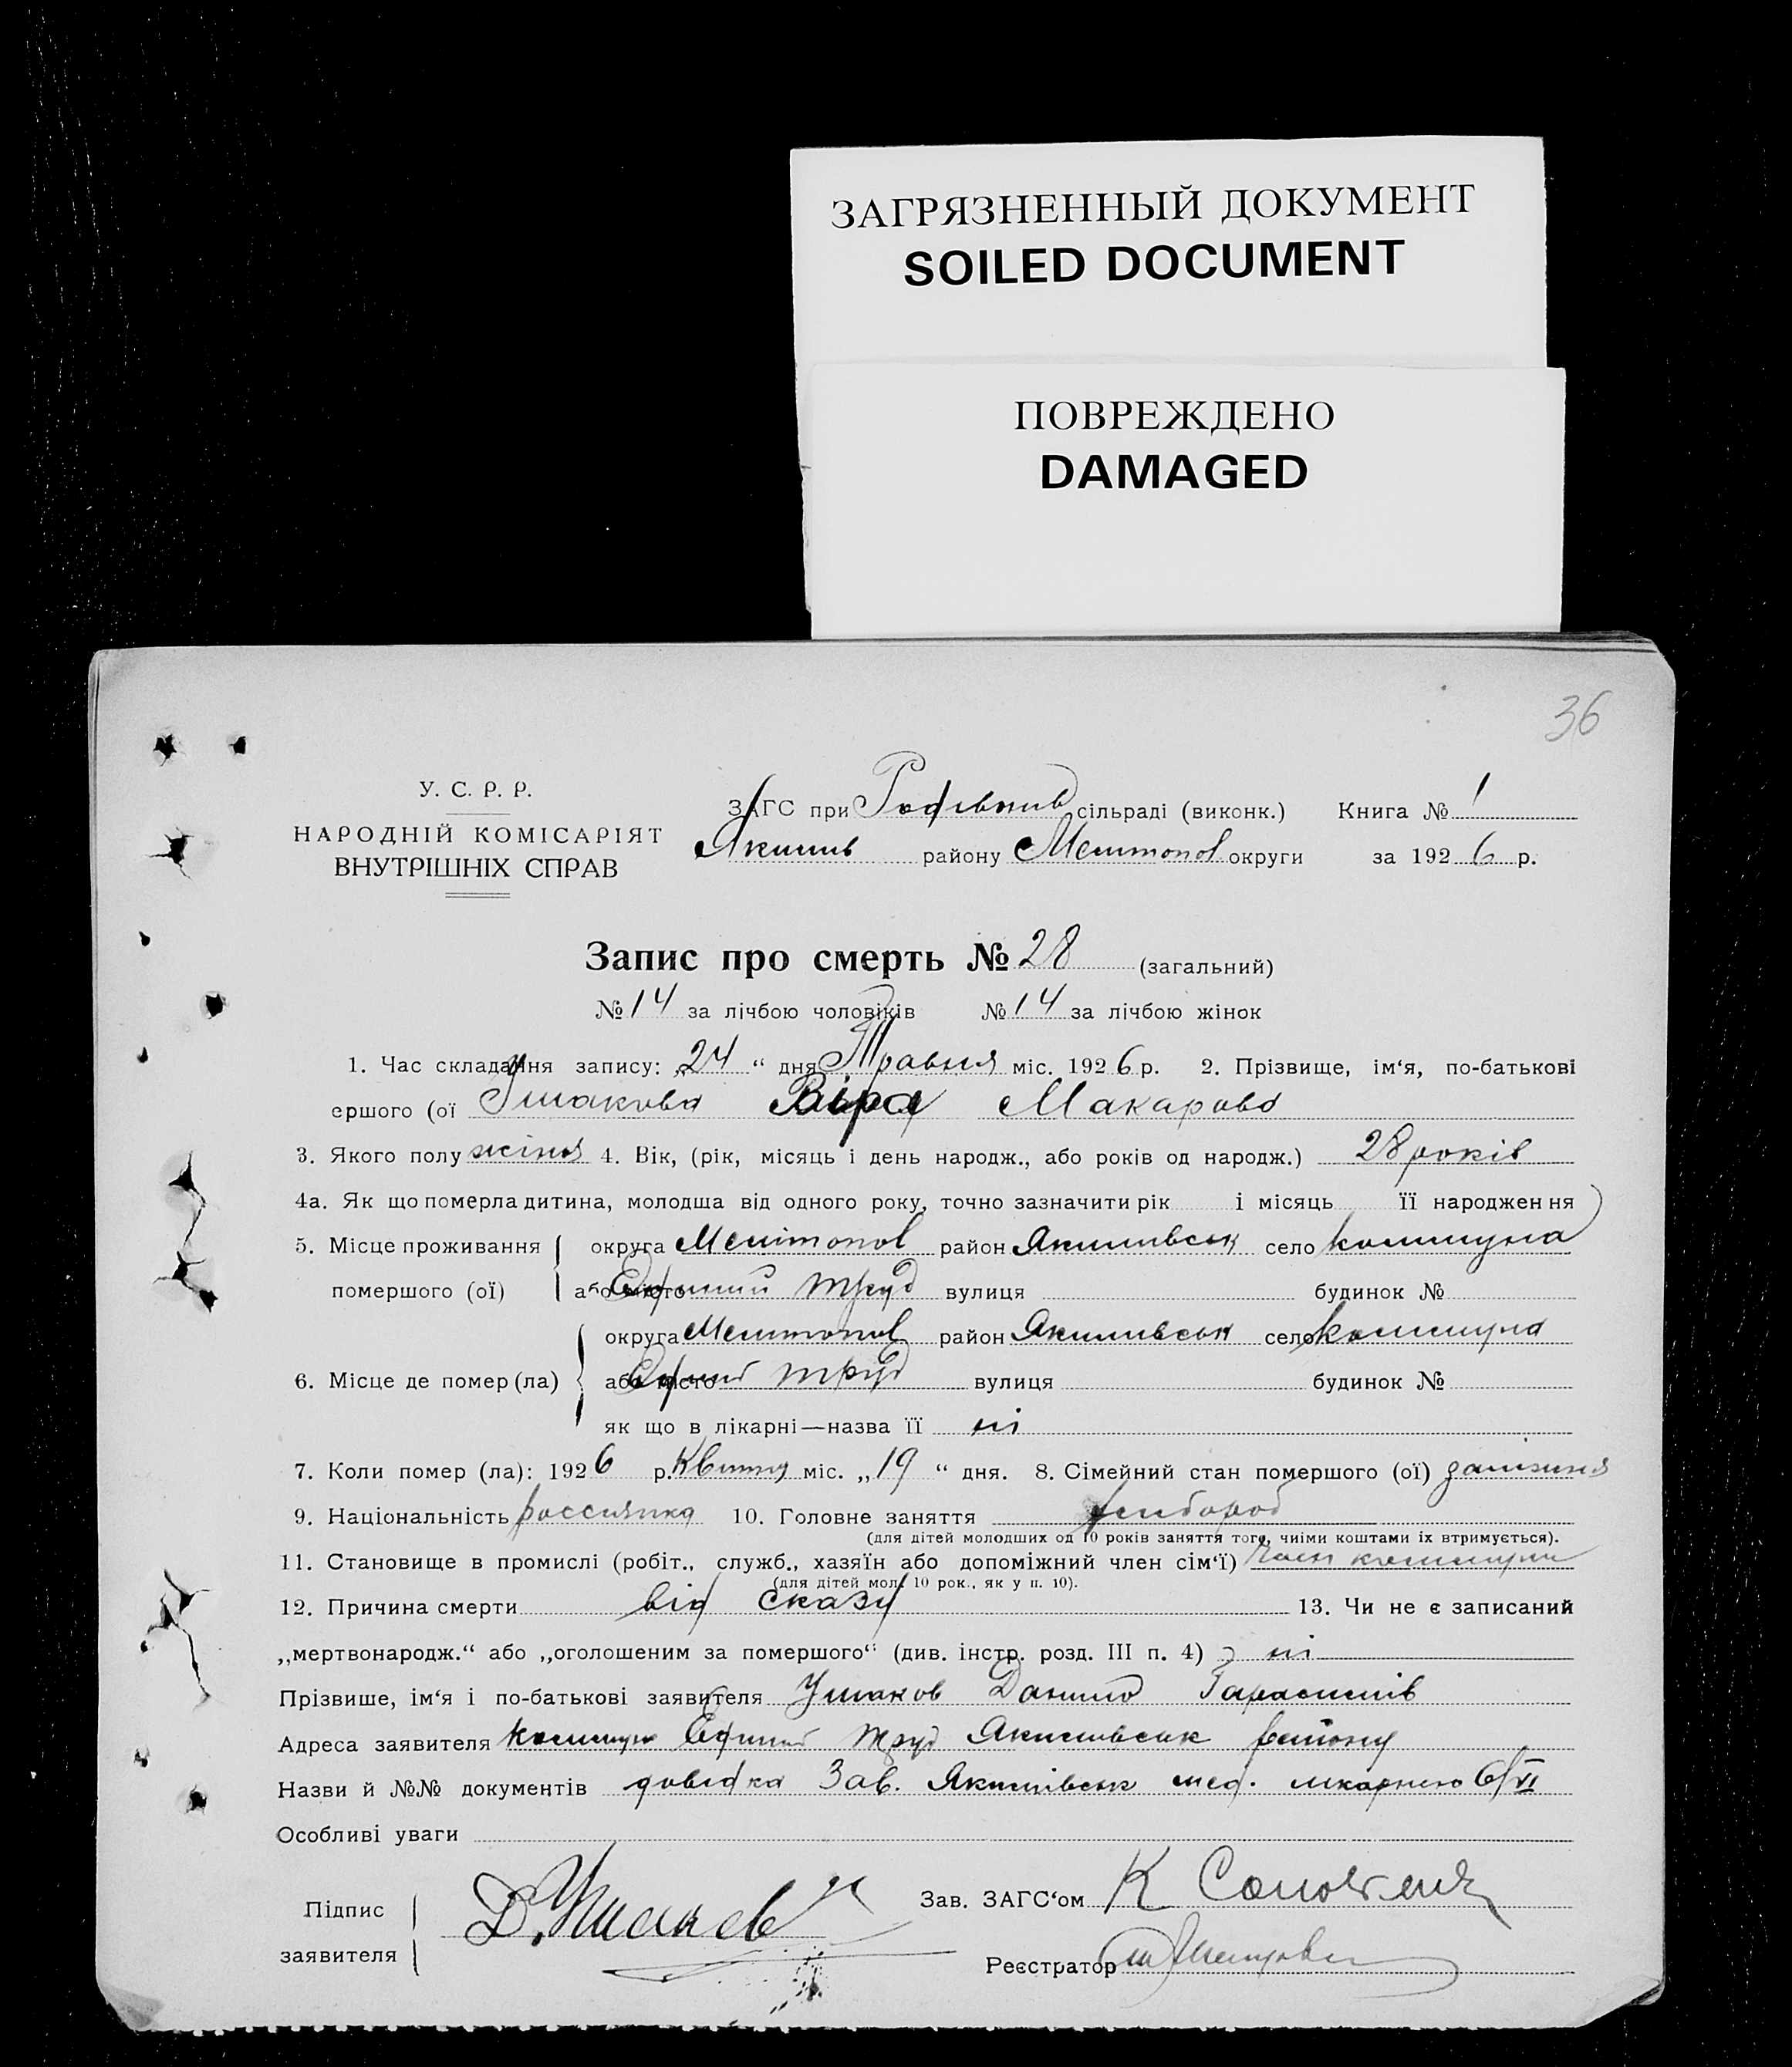 ЗАГРЯЗНЕННЫЙ ДОКУМЕНТ
SOILED DOCUMENT
ПОВРЕЖДЕНО
DAMAGED
36
У. С. Р. Р.
НАРОДНІЙ КОМІСАРІЯТ
ВНУТРІШНІХ СПРАВ
ЗАГС при Родівнив сільраді (виконк.) Книга № 1
Якимів району Мелитопол округи за 1926 р.
Запис про смерть № 28 (загальний)
№ 14 за лічбою чоловіків № 14 за лічбою жінок
1. Час складання запису: „24“ дня Травня міс. 1926 р. 2. Прізвище, ім‘я, по-батькові
ершого (ої Ушакова Віра Макарова
3. Якого полу жіноя 4. Вік, (рік, місяць і день народж., або років од народж.) 28 років
4а. Як що померла дитина, молодша від одного року, точно зазначити рік і місяць її народження
5. Місце проживання округа Мелітопол район Якимивськ село коммуна
померш​ого (ої) або місто Єдиний труд вулиця будинок №
округа Мелитопол район Якимивськ село коммуна
6. Місце де помер (ла) або місто труд вулиця будинок №
як що в лікарні—назва її ні
7. Коли помер (ла): 1926 р. Квитня міс. „19“ дня. 8. Сімейний стан помершого (ої) замізня
9. Національність россиянка 10. Головне заняття хлибороб
(для дітей молодших од 10 років заняття того, чиіми коштами їх втримується).
11. Становище в промислі (робіт., служб., хазяїн або допоміжний член сім‘ї) член коммуни
(для дітей мол. 10 рок., як у п. 10).
12. Причина смерти від сказу 13. Чи не є записаний
„мертвонародж.“ або „оголошеним за помершого“ (див. інстр. розд. III п. 4) ні
Прізвише, ім‘я і по-батькові заявителя Ушаков Данило Гарасимів
Адреса заявителя коммун труд Якимивськ району
Назви й №№ документів довідка Зав. Якимівськ мед. лікарнею 6/VI
Особливі уваги
Підпис Д. Ушаков Зав. ЗАГС‘ом К
заявителя Реєстратор